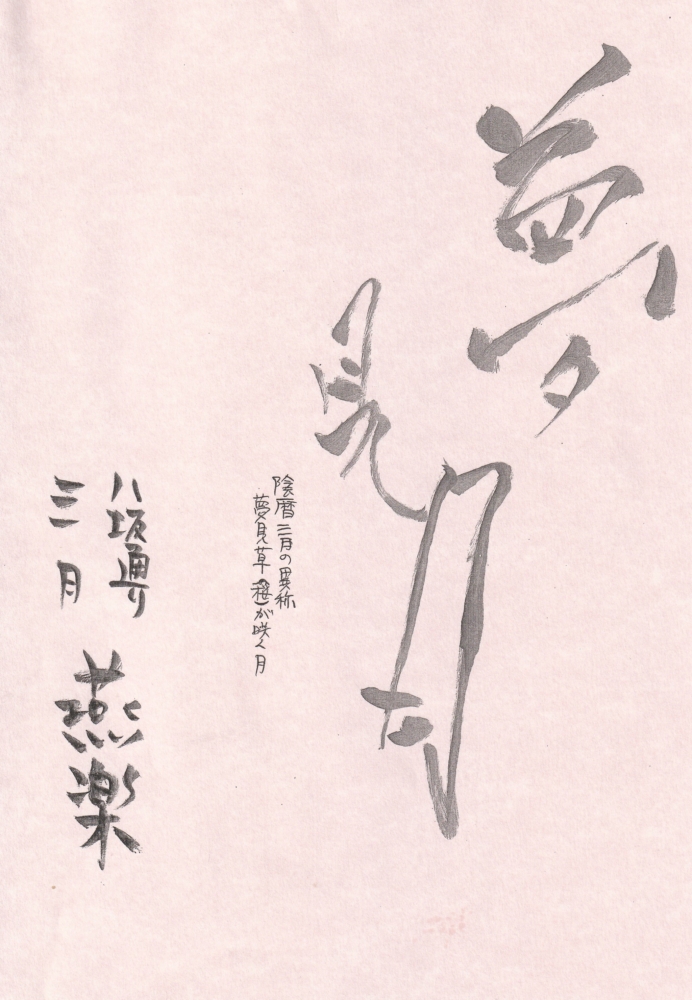 夢見月
陰暦三月の異称
夢見草（桜）が咲く月
八坂通り
燕楽
三月